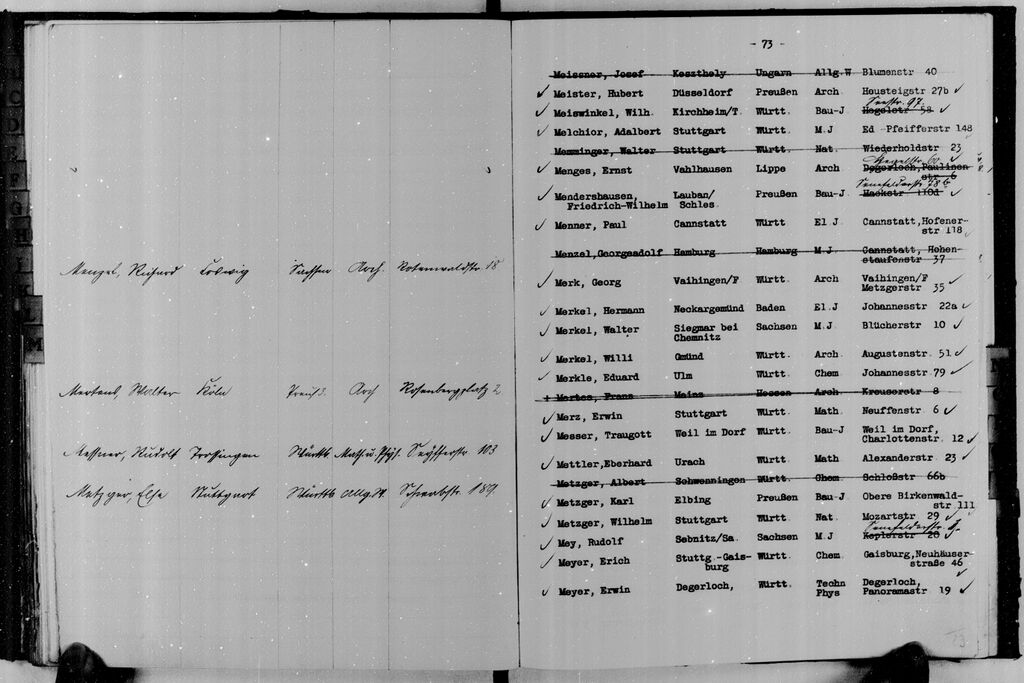 C
D
E
F
G
H
M
Menzel, Richard Ludwig Sachsen Arch. Rotenwaldstr. 18
Mertens, Walter Köln Preuß. Arch Rosenbergplatz 2
Messner, Rudolf Trossingen Württb. Math. u. Phys. Seyfferstr. 103
Metzger, Else Stuttgart Württb. Allg. W. Schwabstr. 189.
- 73 -
Meissner, Josef Keszthely Ungarn Allg.W Blumenstr 40
✓ Meister, Hubert Düsseldorf Preußen Arch Hausteigstr 27b ✓
Seestr. 97.
✓ Meiswinkel, Wilh. Kirchheim/T. Württ. Bau-J Hegelstr 58 ✓
✓ Melchior, Adalbert Stuttgart Württ. M.J Ed Pfeifferstr 148
Memminger, Walter Stuttgart Württ. Nat. Wiederholdstr 23
✓ Menges, Ernst Vahlhausen Lippe Arch Degerloch, Paulinen
str 6
Senefelderstr. 78b
✓ Mendershausen, Lauban/ Preußen Bau-J Mackstr 110d ✓
Friedrich-Wilhelm Schles.
✓ Menner, Paul Cannstatt Württ El J Cannstatt, Hofener-
str 118 ✓
Menzel, Georgeadolf Hamburg Hamburg M.J Cannstatt, Hohen-
staufenstr 37
✓ Merk, Georg Vaihingen/F Württ. Arch Vaihingen/F
Metzgerstr 35 ✓
✓ Merkel, Hermann Neckargemünd Baden El.J Johannesstr 22a ✓
✓ Merkel, Walter Siegmar bei Sachsen M.J. Blücherstr 10 ✓
Chemnitz
✓ Merkel, Willi Gmünd Württ. Arch. Augustenstr. 51 ✓
✓ Merkle, Eduard Ulm Württ. Chem Johannesstr 79 ✓
+ Mertes, Franz Mainz Hessen Arch Kreuserstr 8
✓ Merz, Erwin Stuttgart Württ. Math Neuffenstr 6 ✓
✓ Messer, Traugott Weil im Dorf Württ. Bau-J Weil im Dorf,
Charlottenstr. 12 ✓
✓ Mettler, Eberhard Urach Württ Math Alexanderstr 23 ✓
Metzger, Albert Schwenningen Württ. Chem Schloßstr 66b
✓ Metzger, Karl Elbing Preußen Bau-J Obere Birkenwald-
str 111
✓ Metzger, Wilhelm Stuttgart Württ Nat. Mozartstr 29 ✓
Senefelderstr.
✓ Mey, Rudolf Sebnitz/Sa. Sachsen M.J Keplerstr 20
✓ Meyer, Erich Stuttg.-Gais- Württ. Chem. Gaisburg, Neuhäuser-
burg straße 46 ✓
✓ Meyer, Erwin Degerloch, Württ. Techn Degerloch,
Phys Panoramastr 19 ✓
73